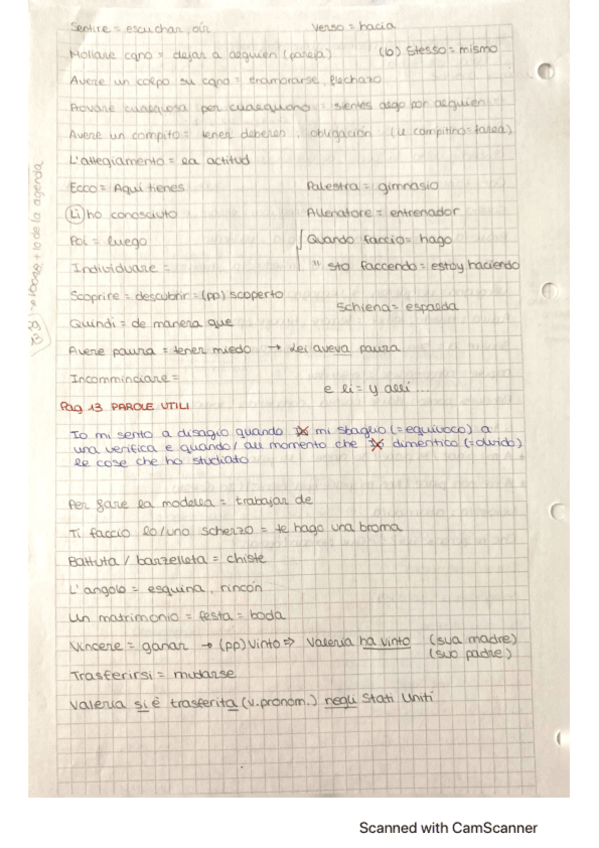 Sentire = escuchar, oír
verso = hacia
Mollare cano = dejar a alguien (pareja)
(lo) Stesso = mismo
Avere un colpo su cano = enamorarse, flechazo
Provare cualquosa per cualquono = sientes algo por alguien
Avere un compito = tener deberes, obligación (il compitino = tarea)
L'attegiamento = la actitud
Ecco = Aquí tienes
Palestra = gimnasio
Li ho conosciuto
Allenatore = entrenador
Poi = luego
Quando faccio = hago
Individuare =
" sto faccendo = estoy haciendo
Scoprire = descubrir = (pp) scoperto
Schiena = espalda
Quindi = de manera que
Avere paura = tener miedo → Lei aveva paura
Incomminciare =
e li = y allí ...
+ 10 de la agenda
Pag 13 PAROLE UTILI
Io mi sento a disagio quando mi sbaglio (= equivoco) a
una verifica e quando / all momento che diméntico (= olvido)
le cose che ho studiato
Per fare la modella = trabajar de
Ti faccio lo/uno scherzo = te hago una broma
Battuta / barzelleta = chiste
L'angolo = esquina, rincón
Un matrimonio = festa = boda
Vincere = ganar → (pp) Vinto ⇒ Valeria ha vinto (sua madre)
(suo padre)
Trasferirsi = mudarse
Valeria si è trasferita (v. pronom.) negli Stati Uniti
Scanned with CamScanner